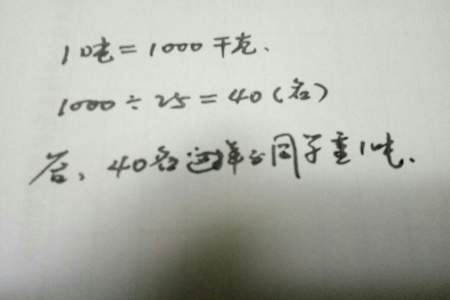 1吨=1000千克.
1000÷25=40(名)
答、40名这样的同学重1吨.